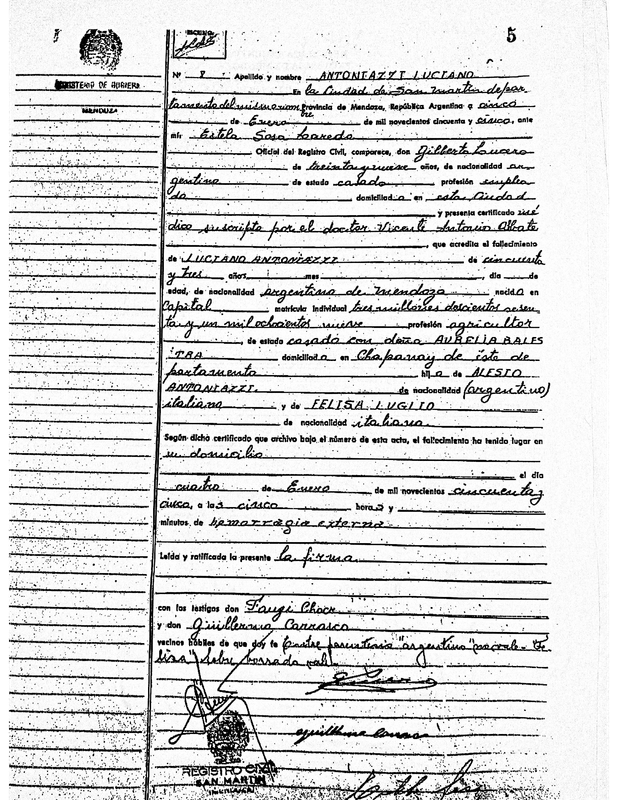 5
MINISTERIO DE GOBIERNO
MENDOZA
Nº 8 Apellido y nombre ANTONIAZZI LUCIANO
En la Ciudad de San Martín depar
tamento del mismo nombre Provincia de Mendoza, República Argentina a cinco
de Enero de mil novecientos cincuenta y cinco, ante
mí: Estela Sosa
Oficial del Registro Civil, comparece, don Gilberto Lucero
de treinta y nueve años, de nacionalidad ar
gentina de estado casado profesión emplea
do domiciliado en esta Ciudad
y presenta certificado mé
dico suscripto por el doctor Vicente Antonio
, que acredita el fallecimiento
de LUCIANO ANTONIAZZI de cincuenta
y tres años, mes día de
edad, de nacionalidad argentina de Mendoza nacido en
Capital matrícula individual tres millones doscientos sesen
ta y un mil ochocientos nueve profesión agricultor
de estado casado con doña AURELIA BALES
TRA domiciliado en Chapanay de éste de
partamento hijo de ALESIO
ANTONIAZZI de nacionalidad (argentino)
italiana y de FELISA LUGLIO
de nacionalidad italiana
Según dicho certificado que archivo bajo el número de esta acta, el fallecimiento ha tenido lugar en
su domicilio
el día
cuatro de Enero de mil novecientos cincuenta y
cinco, a las cinco horas y
minutos, de hemorragia externa
Leída y ratificada la presente la firma
con los testigos don Chocr
y don Guillermo Carrasco
vecinos hábiles de que doy fe Entre parentesis "argentino" no vale - "Fe
lisa" sobre borrado vale
REGISTRO CIVIL
SAN MARTIN
(MENDOZA)